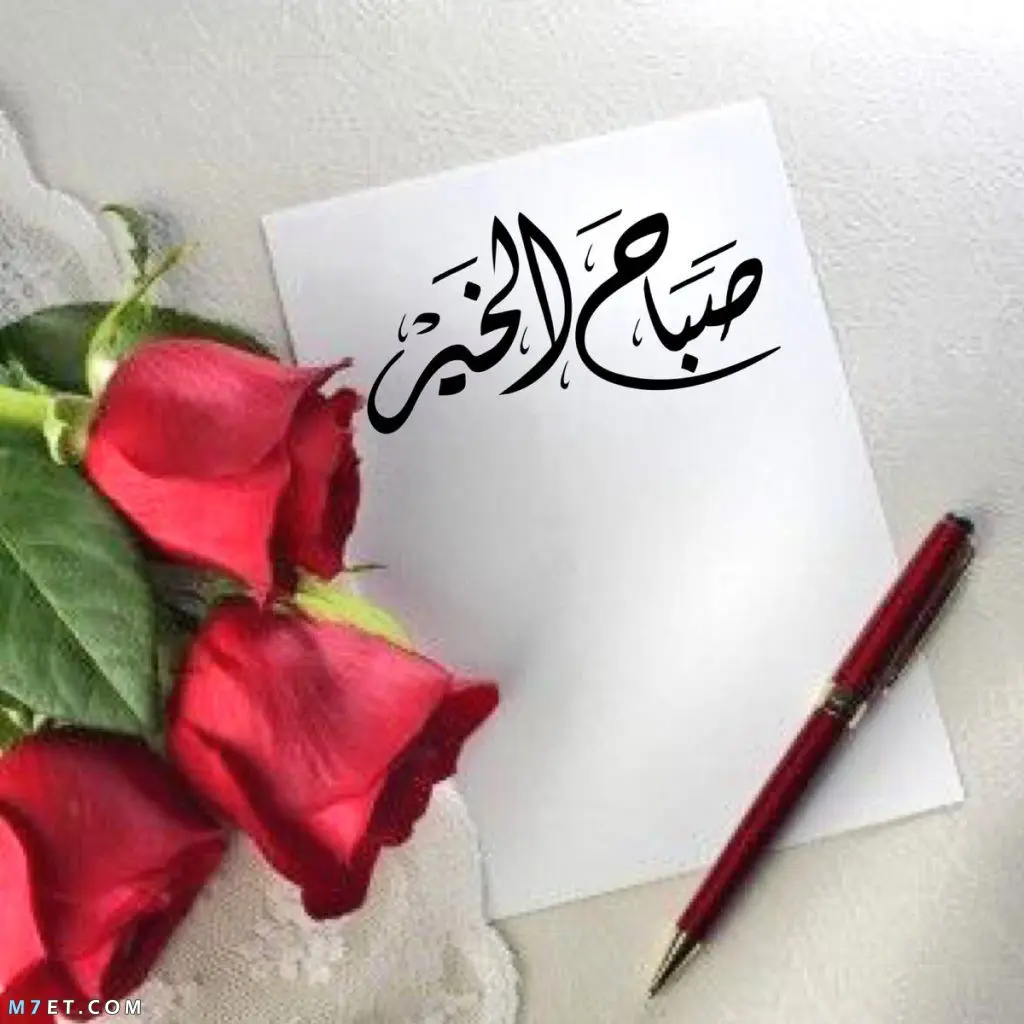 صباح الخير
M7ET.COM